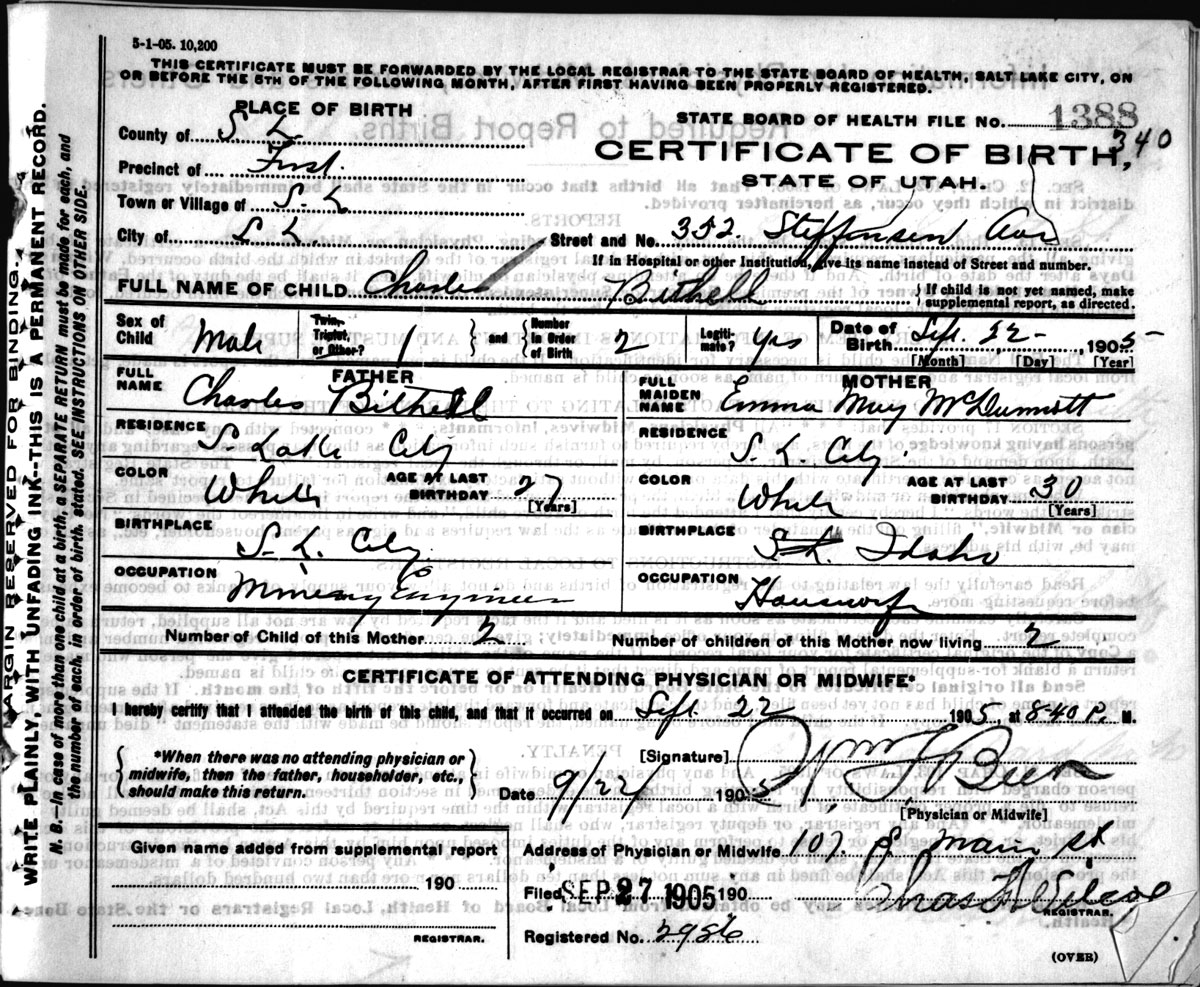 5-1-05. 10,200
THIS CERTIFICATE MUST BE FORWARDED BY THE LOCAL REGISTRAR TO THE STATE BOARD OF HEALTH, SALT LAKE CITY, ON
OR BEFORE THE 5TH OF THE FOLLOWING MONTH, AFTER FIRST HAVING BEEN PROPERLY REGISTERED.
MARGIN RESERVED FOR BINDING.
WRITE PLAINLY, WITH UNFADING INK--THIS IS A PERMANENT RECORD.
N. B.--In case of more than one child at a birth, a SEPARATE RETURN must be made for each, and
the number of each, in order of birth, stated. SEE INSTRUCTIONS ON OTHER SIDE.
PLACE OF BIRTH
County of S. L.
Precinct of First.
Town or Village of S. L
City of S. L.
STATE BOARD OF HEALTH FILE NO. 1388
340
CERTIFICATE OF BIRTH,
STATE OF UTAH.
Street and No. 352 Steffensen Ave
If in Hospital or other Institution, give its name instead of Street and number.
FULL NAME OF CHILD Charles Bithell
{ If child is not yet named, make
supplemental report, as directed.
Sex of Child Male
Twin, Triplet, or Other? 1 } and { Number in Order of Birth 2
Legiti- mate? yes
Date of Birth Sept. 22- 1905
[Month] [Day] [Year]
FATHER
FULL NAME Charles Bithell
RESIDENCE S. Lake City
COLOR White
AGE AT LAST BIRTHDAY 27
[Years]
BIRTHPLACE S. L. City
OCCUPATION Mining Engineer
MOTHER
FULL MAIDEN NAME Emma May McDermott
RESIDENCE S. L. City.
COLOR White
AGE AT LAST BIRTHDAY 30
[Years]
BIRTHPLACE S. L. Idaho
OCCUPATION Housewife
Number of Child of this Mother 2
Number of children of this Mother now living 2
CERTIFICATE OF ATTENDING PHYSICIAN OR MIDWIFE*
I hereby certify that I attended the birth of this child, and that it occurred on Sept. 22 1905, at 8:40 P. M.
{ *When there was no attending physician or
midwife, then the father, householder, etc.,
should make this return. }
[Signature] Wm T.
Date 9/22 1905
[Physician or Midwife]
Given name added from supplemental report
190
REGISTRAR.
Address of Physician or Midwife 107. S. Main st
Filed SEP 27 1905 190 Chas
REGISTRAR.
Registered No. 2986
(OVER)